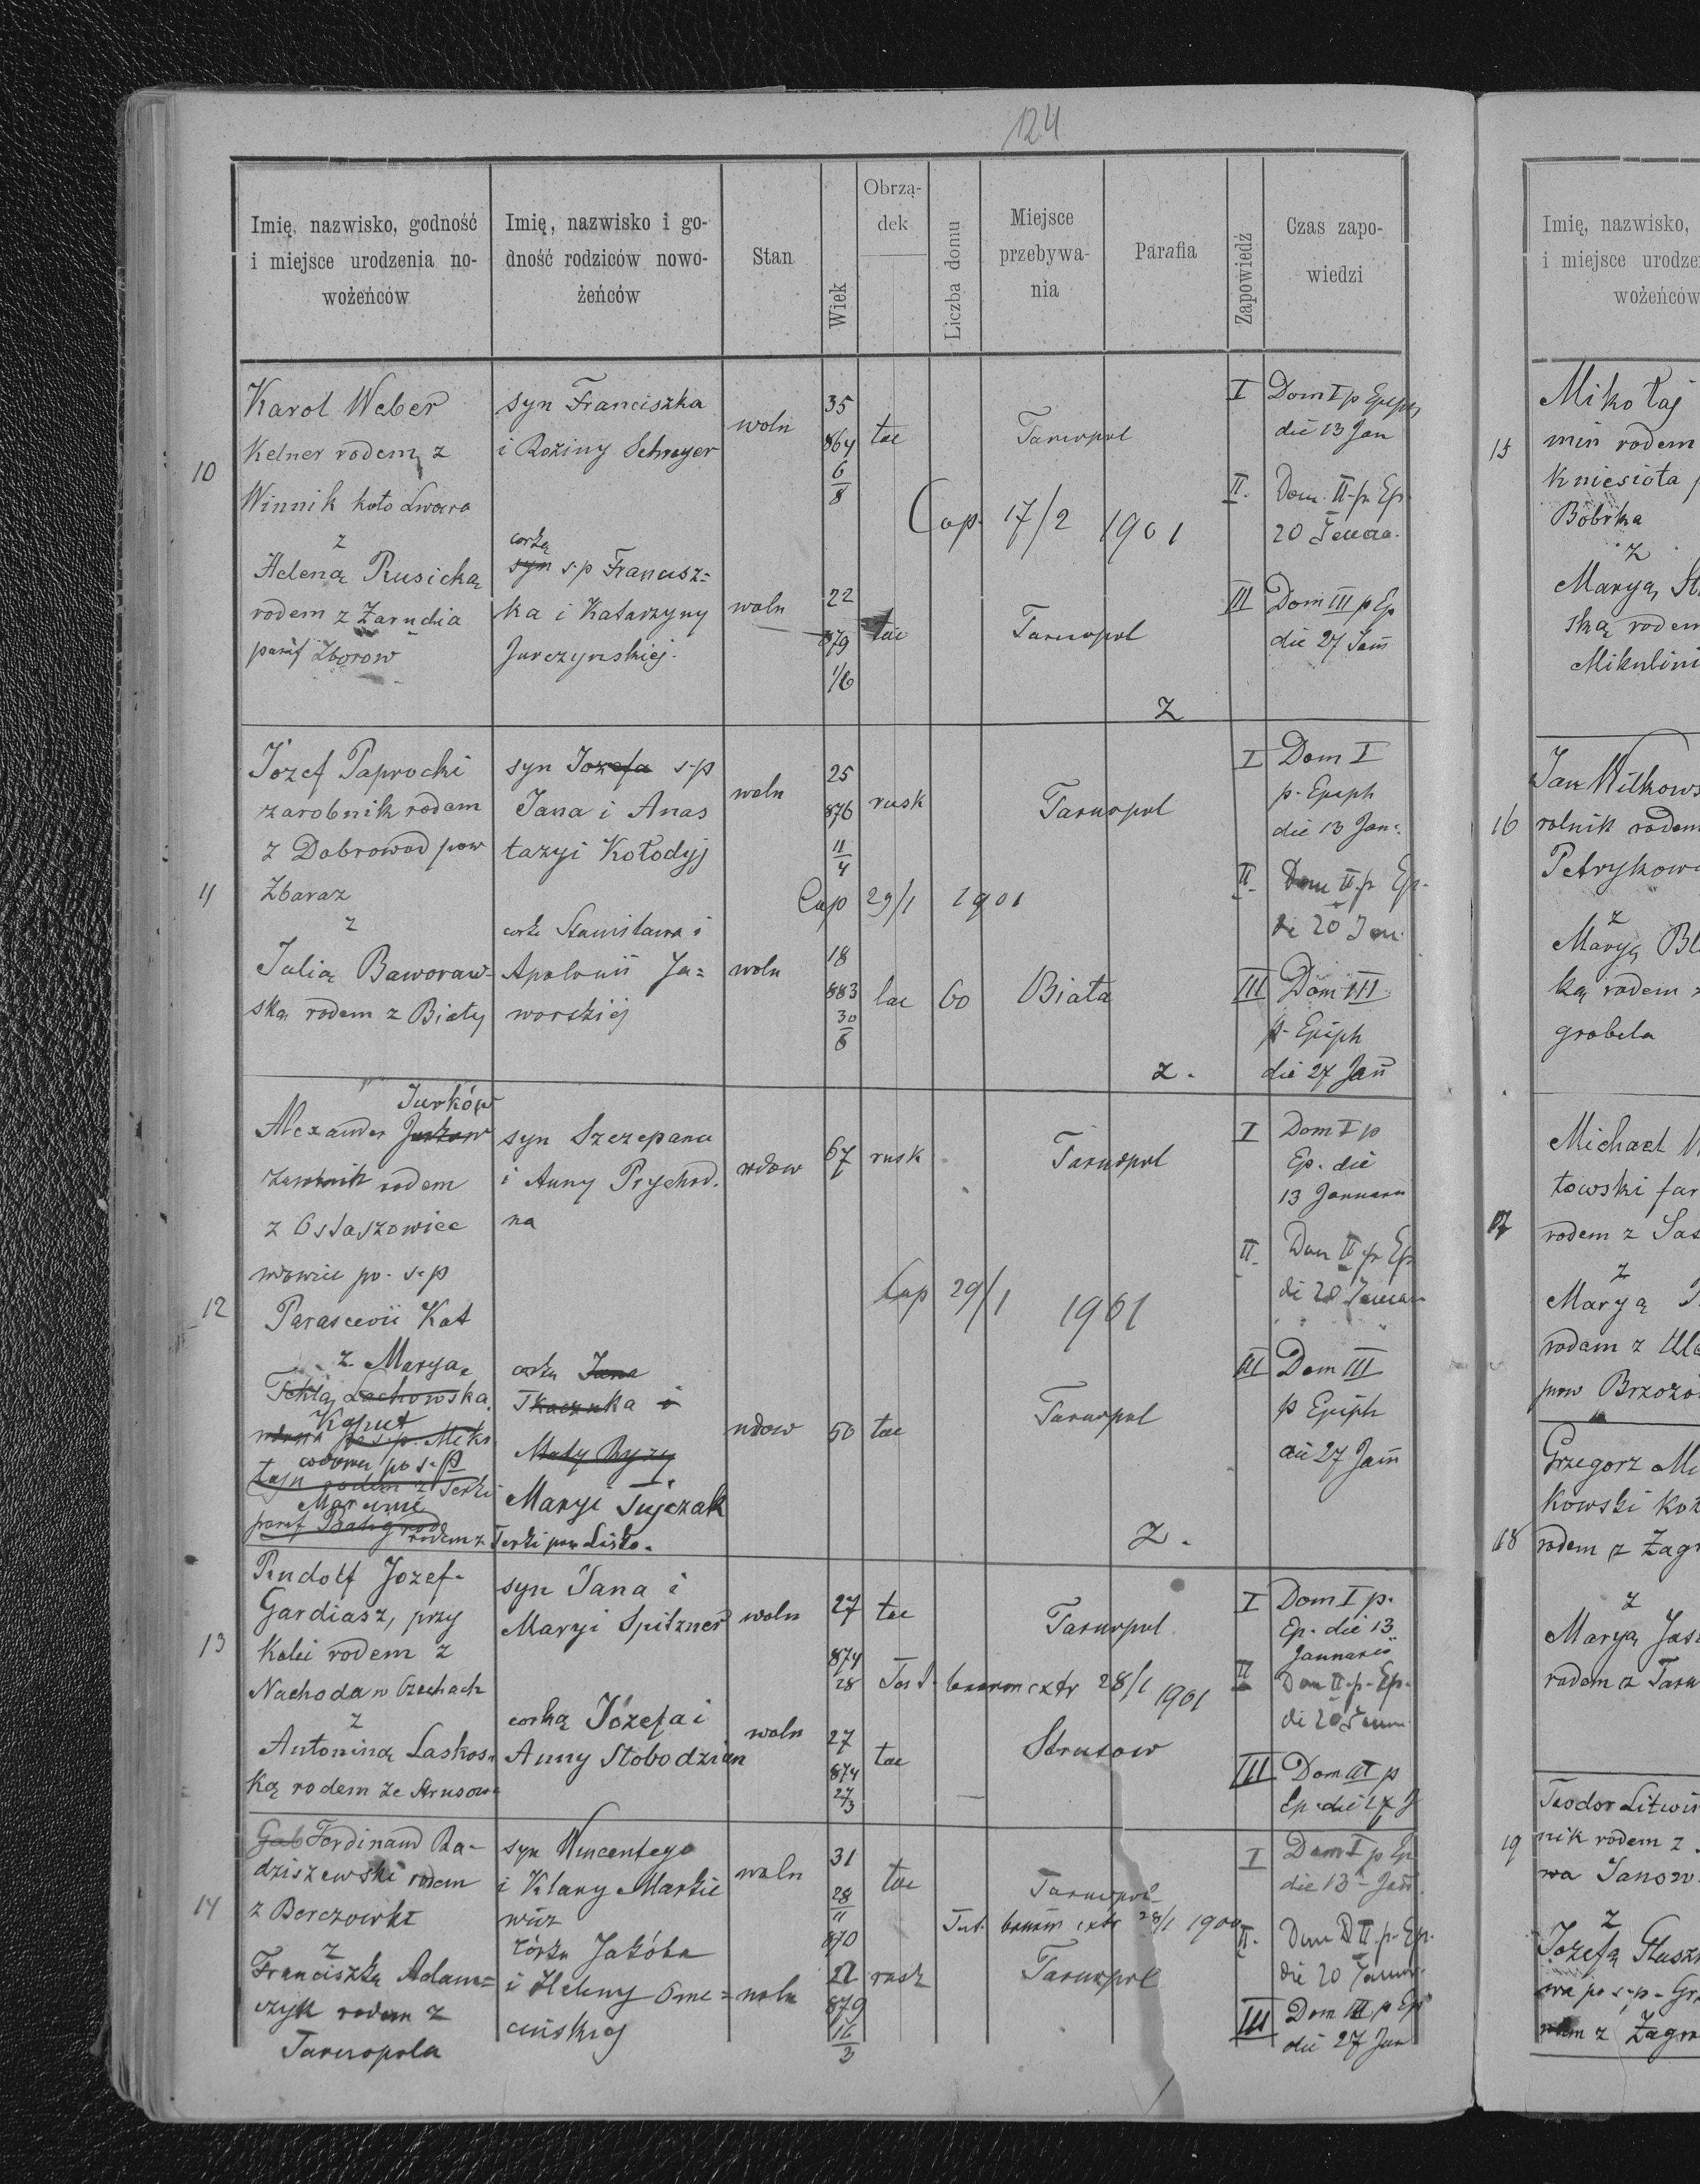 124
Imię, nazwisko, godność
i miejsce urodzenia no-
wożeńców
Imię, nazwisko i go-
dność rodziców nowo-
żeńców
Stan
Wiek
Obrzą-
dek
Liczba domu
Miejsce
przebywa-
nia
Parafia
Zapowiedź
Czas zapo-
wiedzi
10
Karol Weber
Kelner rodem z
Winnik koło Lwowa
z
Heleną Rusicką
rodem z Zarudia
paraf Zborow
syn Franciszka
i Roziny Schreyer
corką
syn s.p Francisz=
ka i Katarzyny
Jurczynskiej.
woln
woln
35
864
6
8
22
879
1/6
lac
lac
Tarnopol
Cop. 17/2 1901
Tarnopol
z
I Dom I p Epiph
die 13 Jan
II. Dom. II. p. Ep.
20 Januar.
III Dom III p Ep
die 27 Jan
11
Józef Paprocki
zarobnik rodem
z Dobrowod pow
Zbaraz
z
Julią Baworow-
ską rodem z Biały
syn Jozefa s.p
Jana i Anas
tazyi Kołodyj
corka Stanisława i
Apolonii Ja=
worskiej
woln
woln
25
876
11
4
18
883
30
8
rusk
Cop 29/1 1901
lac 60 Biała
Tarnopol
z.
I Dom I
p. Epiph
die 13 Jan.
II. Dom II. p Ep.
die 20 Jan.
III Dom III
p. Epiph
die 27 Jan
12
Jurków
Alexander Jurkow
zarobnik rodem
z Ostaszowiec
wdowiec po s.p
Parascevii Kot
z Maryą
Teklą Lachowska
Kaput
wdowa po s.p.
wdowa po s.p
rodem z Terki
rodem z Terki pow Lisko.
syn Szczepana
i Anny Prychod.
na
corka Jana
Tkaczuka i
Maryi Tujczak
wdow
wdow
67
50
rusk
lac
Tarnopol
Cop 29/1 1901
Tarnopol
z.
I Dom I p
Ep. die
13 Januarii
II. Dom II p Ep
die 20 Januar
III Dom III
p Epiph
die 27 Jan
13
Rudolf Jozef
Gardiasz, przy
kolei rodem z
Nachoda w Czechach
z
Antoniną Laskos-
ką rodem ze Strusowa
syn Jana i
Maryi Spitzner
corką Józefa i
Anny Słobodzian
woln
woln
27
874
28
27
874
27
3
lac
lac
Tarnopol
Test. bannorum extr 28/1 1901
Strusow
I Dom I p.
Ep. die 13
Januarii
II Dom II. p. Ep.
die 20 Januar
III Dom III p
Ep. die 27 J
14
Gab Ferdinand Ra-
dziszewski rodem
z
Franciszką Adam=
czyk rodem z
Tarnopola
syn Wincentego
i Klary Markie
wicz
córka Jakóba
i Heleny Ome=
cińskiej
woln
woln
31
28
11
870
22
879
16
3
lac
rusk
Tarnopol
Test. bannor extr 28/1 1900
Tarnopol
I Dom I p Ep
die 13 Jan
II. Dom II. p. Ep.
die 20 Januar.
III Dom III p Ep
die 27 Jan
Imię, nazwisko,
i miejsce urodze
wożeńców
15
Mikołaj
rodem
Kniesioła
Bobrka
z
Maryą
ską rodem
16
Jan Witkows
rolnik rodem
Petrykowa
z
Maryą
ką rodem
grobela
17
Michael
towski
rodem z
z
Maryą
rodem z
pow Brzozo
18
Grzegorz
kowski
rodem z Zagr
z
Maryą
rodem z Tarn
19
Teodor Litwin
nik rodem z
wa Janow
z
Jozefą
wa po s.p. Gr
z Zagro